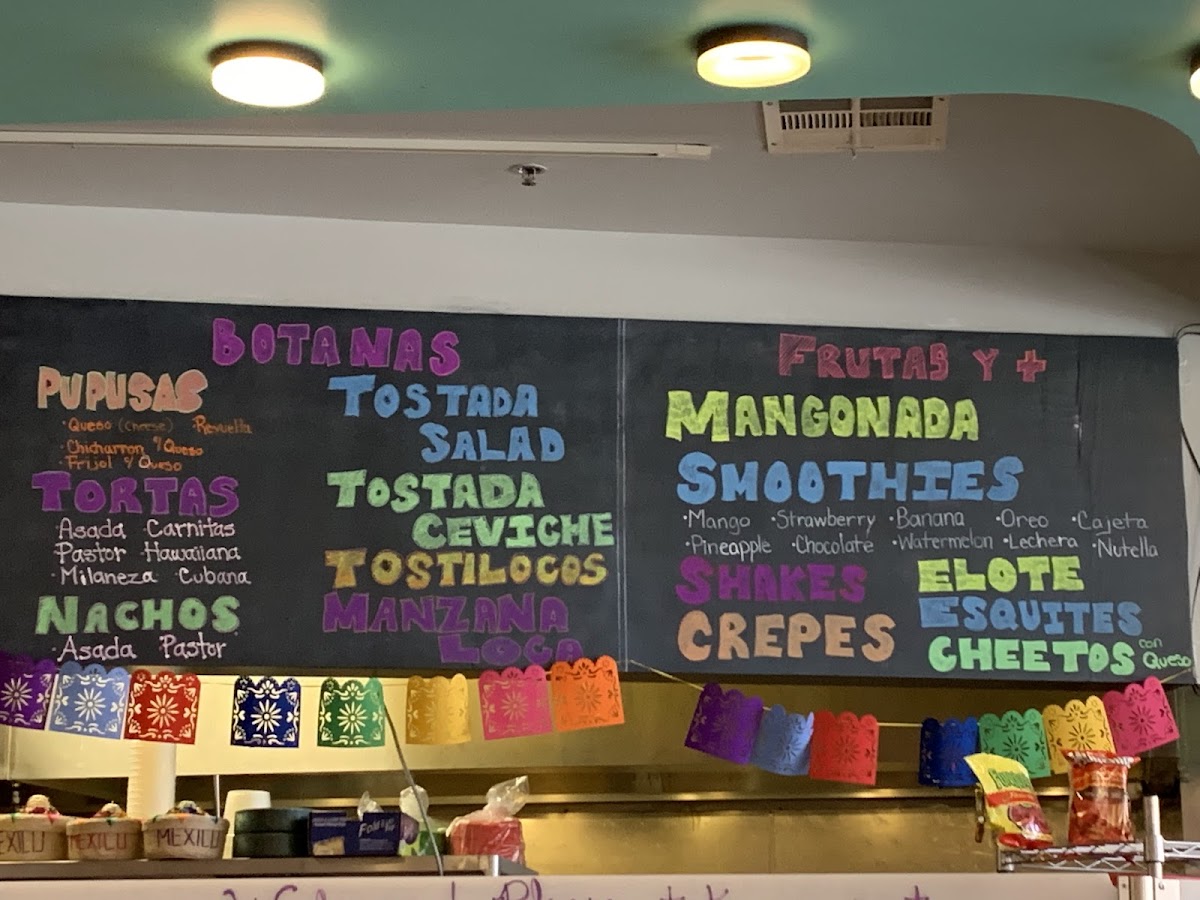 BOTANAS
PUPUSAS
·Queso (Cheese) ·Revuelta
·Chicharron y Queso
·Frijol y Queso
TORTAS
·Asada ·Carnitas
·Pastor ·Hawaiiana
·Milaneza ·Cubana
NACHOS
·Asada ·Pastor
TOSTADA
SALAD
TOSTADA
CEVICHE
TOSTILOCOS
MANZANA
LOCA
FRUTAS Y +
MANGONADA
SMOOTHIES
·Mango ·Strawberry ·Banana ·Oreo ·Cajeta
·Pineapple ·Chocolate ·Watermelon ·Lechera ·Nutella
SHAKES
CREPES
ELOTE
ESQUITES
CHEETOS con Queso
MEXICO
MEXICO
MEXICO